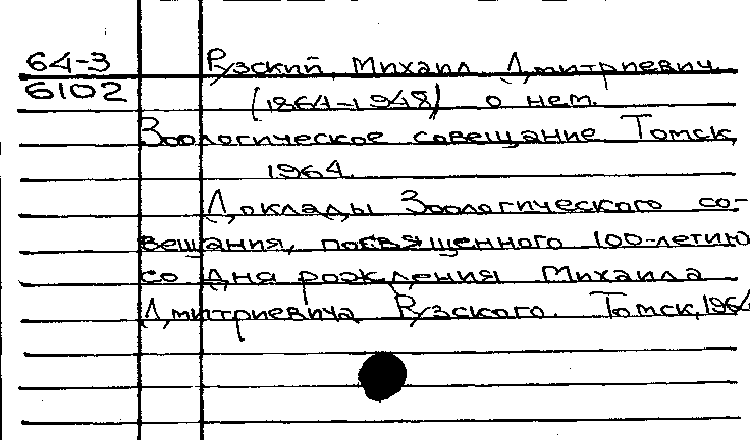 64-3 Рузский, Михаил Дмитриевич
6102 (1864-1948) о нем.
Зоологическое совещание Томск,
1964.
Доклады Зоологического со-
вещания, посвященного 100-летию
со дня рождения Михаила
Дмитриевича Рузского. Томск, 1964